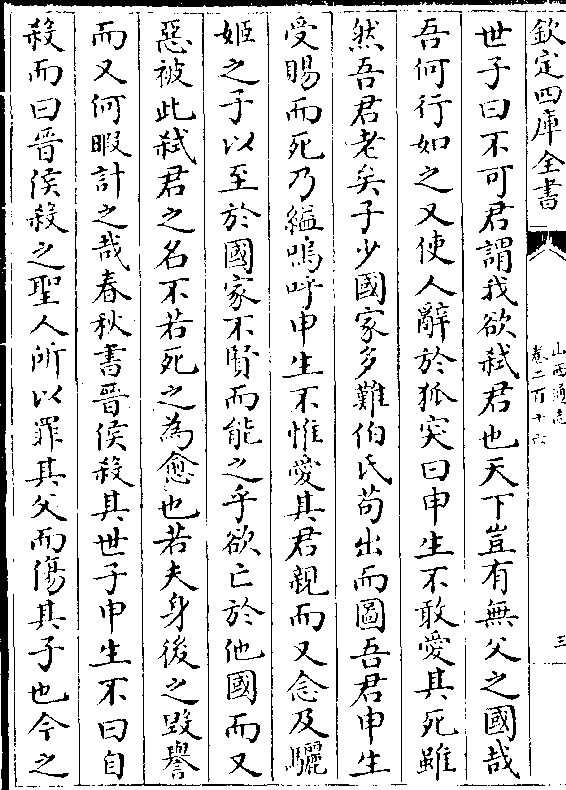 欽定四庫全書
山西通志
卷二百十六
三
世子曰不可君謂我欲弑君也天下豈有無父之國哉
吾何行如之又使人辭於狐突曰申生不敢愛其死雖
然吾君老矣子少國家多難伯氏苟出而圖吾君申生
受賜而死乃縊嗚呼申生不惟愛其君親而又念及驪
姬之子以至於國家不賢而能之乎欲亡於他國而又
惡被此弑君之名不若死之為愈也若夫身後之毀譽
而又何暇計之哉春秋書晉侯殺其世子申生不曰自
殺而曰晉侯殺之聖人所以罪其父而傷其子也今之